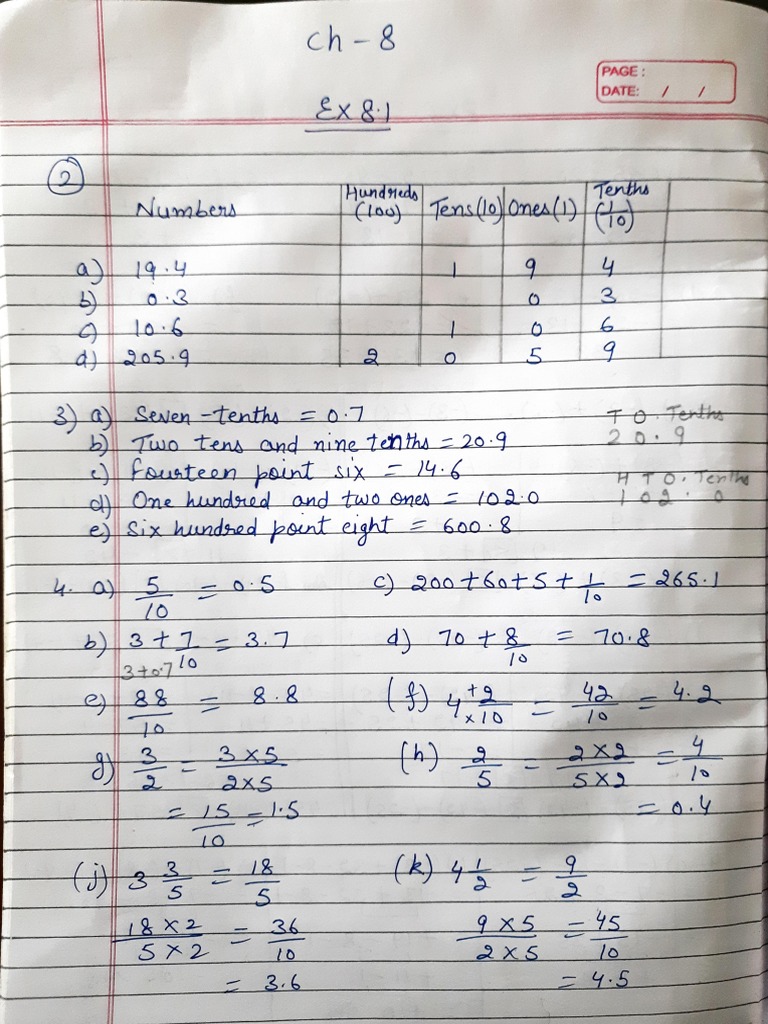 Ch - 8
PAGE :
DATE: / /
Ex 8.1
2
Numbers Hundreds (100) Tens(10) Ones(1) Tenths (1/10)
a) 19.4 1 9 4
b) 0.3 0 3
c) 10.6 1 0 6
d) 205.9 2 0 5 9
3) a) Seven-tenths = 0.7
T O . Tenths
b) Two tens and nine tenths = 20.9
2 0 . 9
c) Fourteen point six = 14.6
H T O . Tenths
d) One hundred and two ones = 102.0
1 0 2 . 0
e) Six hundred point eight = 600.8
4. a) 5/10 = 0.5 c) 200+60+5+1/10 = 265.1
b) 3 + 7/10 = 3.7 d) 70 + 8/10 = 70.8
3+0.7
e) 88/10 = 8.8 (f) 4 +2/×10 = 42/10 = 4.2
g) 3/2 = 3×5/2×5 (h) 2/5 = 2×2/5×2 = 4/10
= 15/10 = 1.5 = 0.4
(j) 3 3/5 = 18/5 (k) 4 1/2 = 9/2
18×2/5×2 = 36/10 9×5/2×5 = 45/10
= 3.6 = 4.5